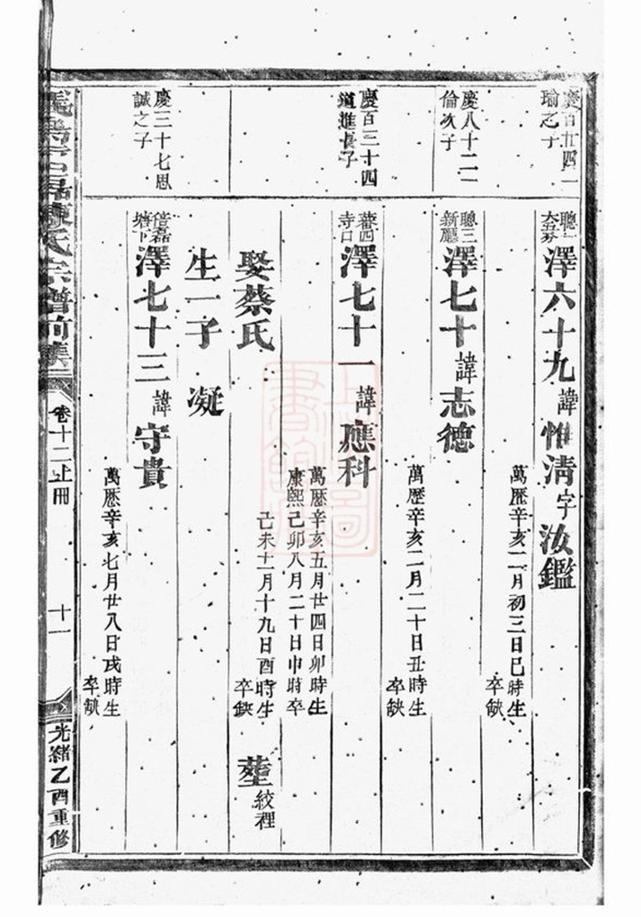 慶百廿四一
瑜之子
聰一
澤六十九諱惟清字汝鑑
萬歷辛亥二月初三日巳時生
卒缺
慶八十二二
倫次子
聰三
新廳
澤七十諱志德
萬歷辛亥二月二十日丑時生
卒缺
慶百三十四
道進長子
蕃四
寺口
澤七十一諱應科
萬歷辛亥五月廿四日卯時生
康熙己卯八月二十日申時卒
娶蔡氏
己未十二月十九日酉時生
卒缺
葬絞裡
生一子 凝
慶三十七恩
誠之子
塘下
澤七十三諱守貴
萬歷辛亥七月廿八日戌時生
卒缺
陳氏宗譜前集
卷十二上冊
十一
光緒乙酉重修